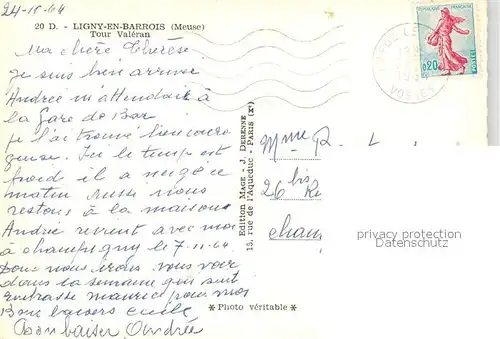 24-10-64
20 D. - LIGNY-EN-BARROIS (Meuse)
Tour Valéran
Ma chère Thérèse
je suis bien arrivée
Andrée m'attendait à
la Gare de Bar
je l'ai trouvé bien coura
geuse. Ici le temps est
froid il a neigé ce
matin aussi nous
restons à la maison
Andrée revient avec moi
à champigny le 7-11-64
Donc nous irons vous voir
dans la semaine qui suit
embrasse maurice pour moi
Bons baisers
Bon baiser Andrée
Edition MAGE - J. DERENNE
15, rue de l'Aqueduc - PARIS (X°)
* Photo véritable *
REPUBLIQUE FRANÇAISE
0,20
POSTES
VOSGES
Mme R
26 bis R
cham
privacy protection
Datenschutz